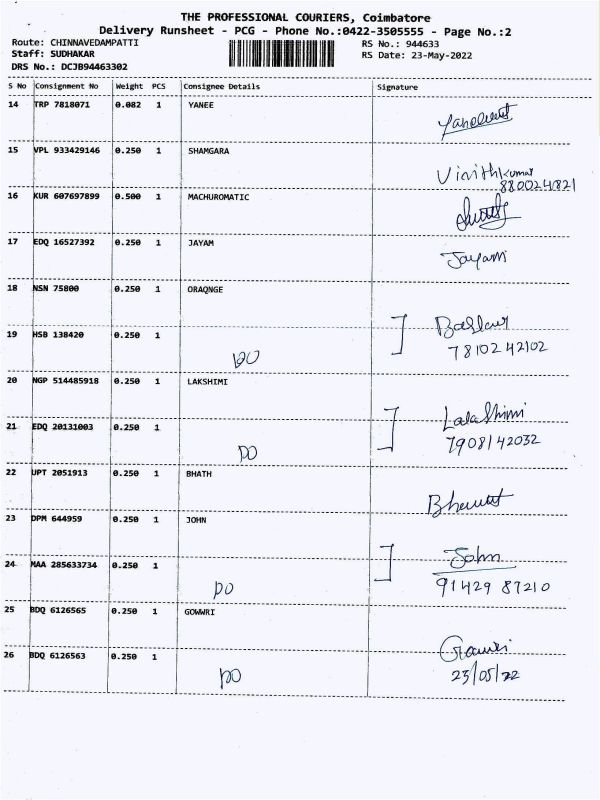 THE PROFESSIONAL COURIERS, Coimbatore
Delivery Runsheet - PCG - Phone No.:0422-3505555 - Page No.:2
Route: CHINNAVEDAMPATTI
RS No.: 944633
Staff: SUDHAKAR
RS Date: 23-May-2022
DRS No.: DCJB94463302
S No Consignment No Weight PCS Consignee Details Signature
14 TRP 7818071 0.082 1 YANEE
15 VPL 933429146 0.250 1 SHAMGARA
Vinithkumar
880024821
16 KUR 607697899 0.500 1 MACHUROMATIC
17 EDQ 16527392 0.250 1 JAYAM
Jayam
18 NSN 75800 0.250 1 ORAQNGE
19 HSB 138420 0.250 1
DO
78102 42102
20 NGP 514485918 0.250 1 LAKSHIMI
Lakshimi
21 EDQ 20131003 0.250 1
DO
7908142032
22 UPT 2051913 0.250 1 BHATH
23 DPM 644959 0.250 1 JOHN
John
24 MAA 285633734 0.250 1
DO
91429 87210
25 BDQ 6126565 0.250 1 GOWWRI
Gowri
26 BDQ 6126563 0.250 1
DO
23/05/22